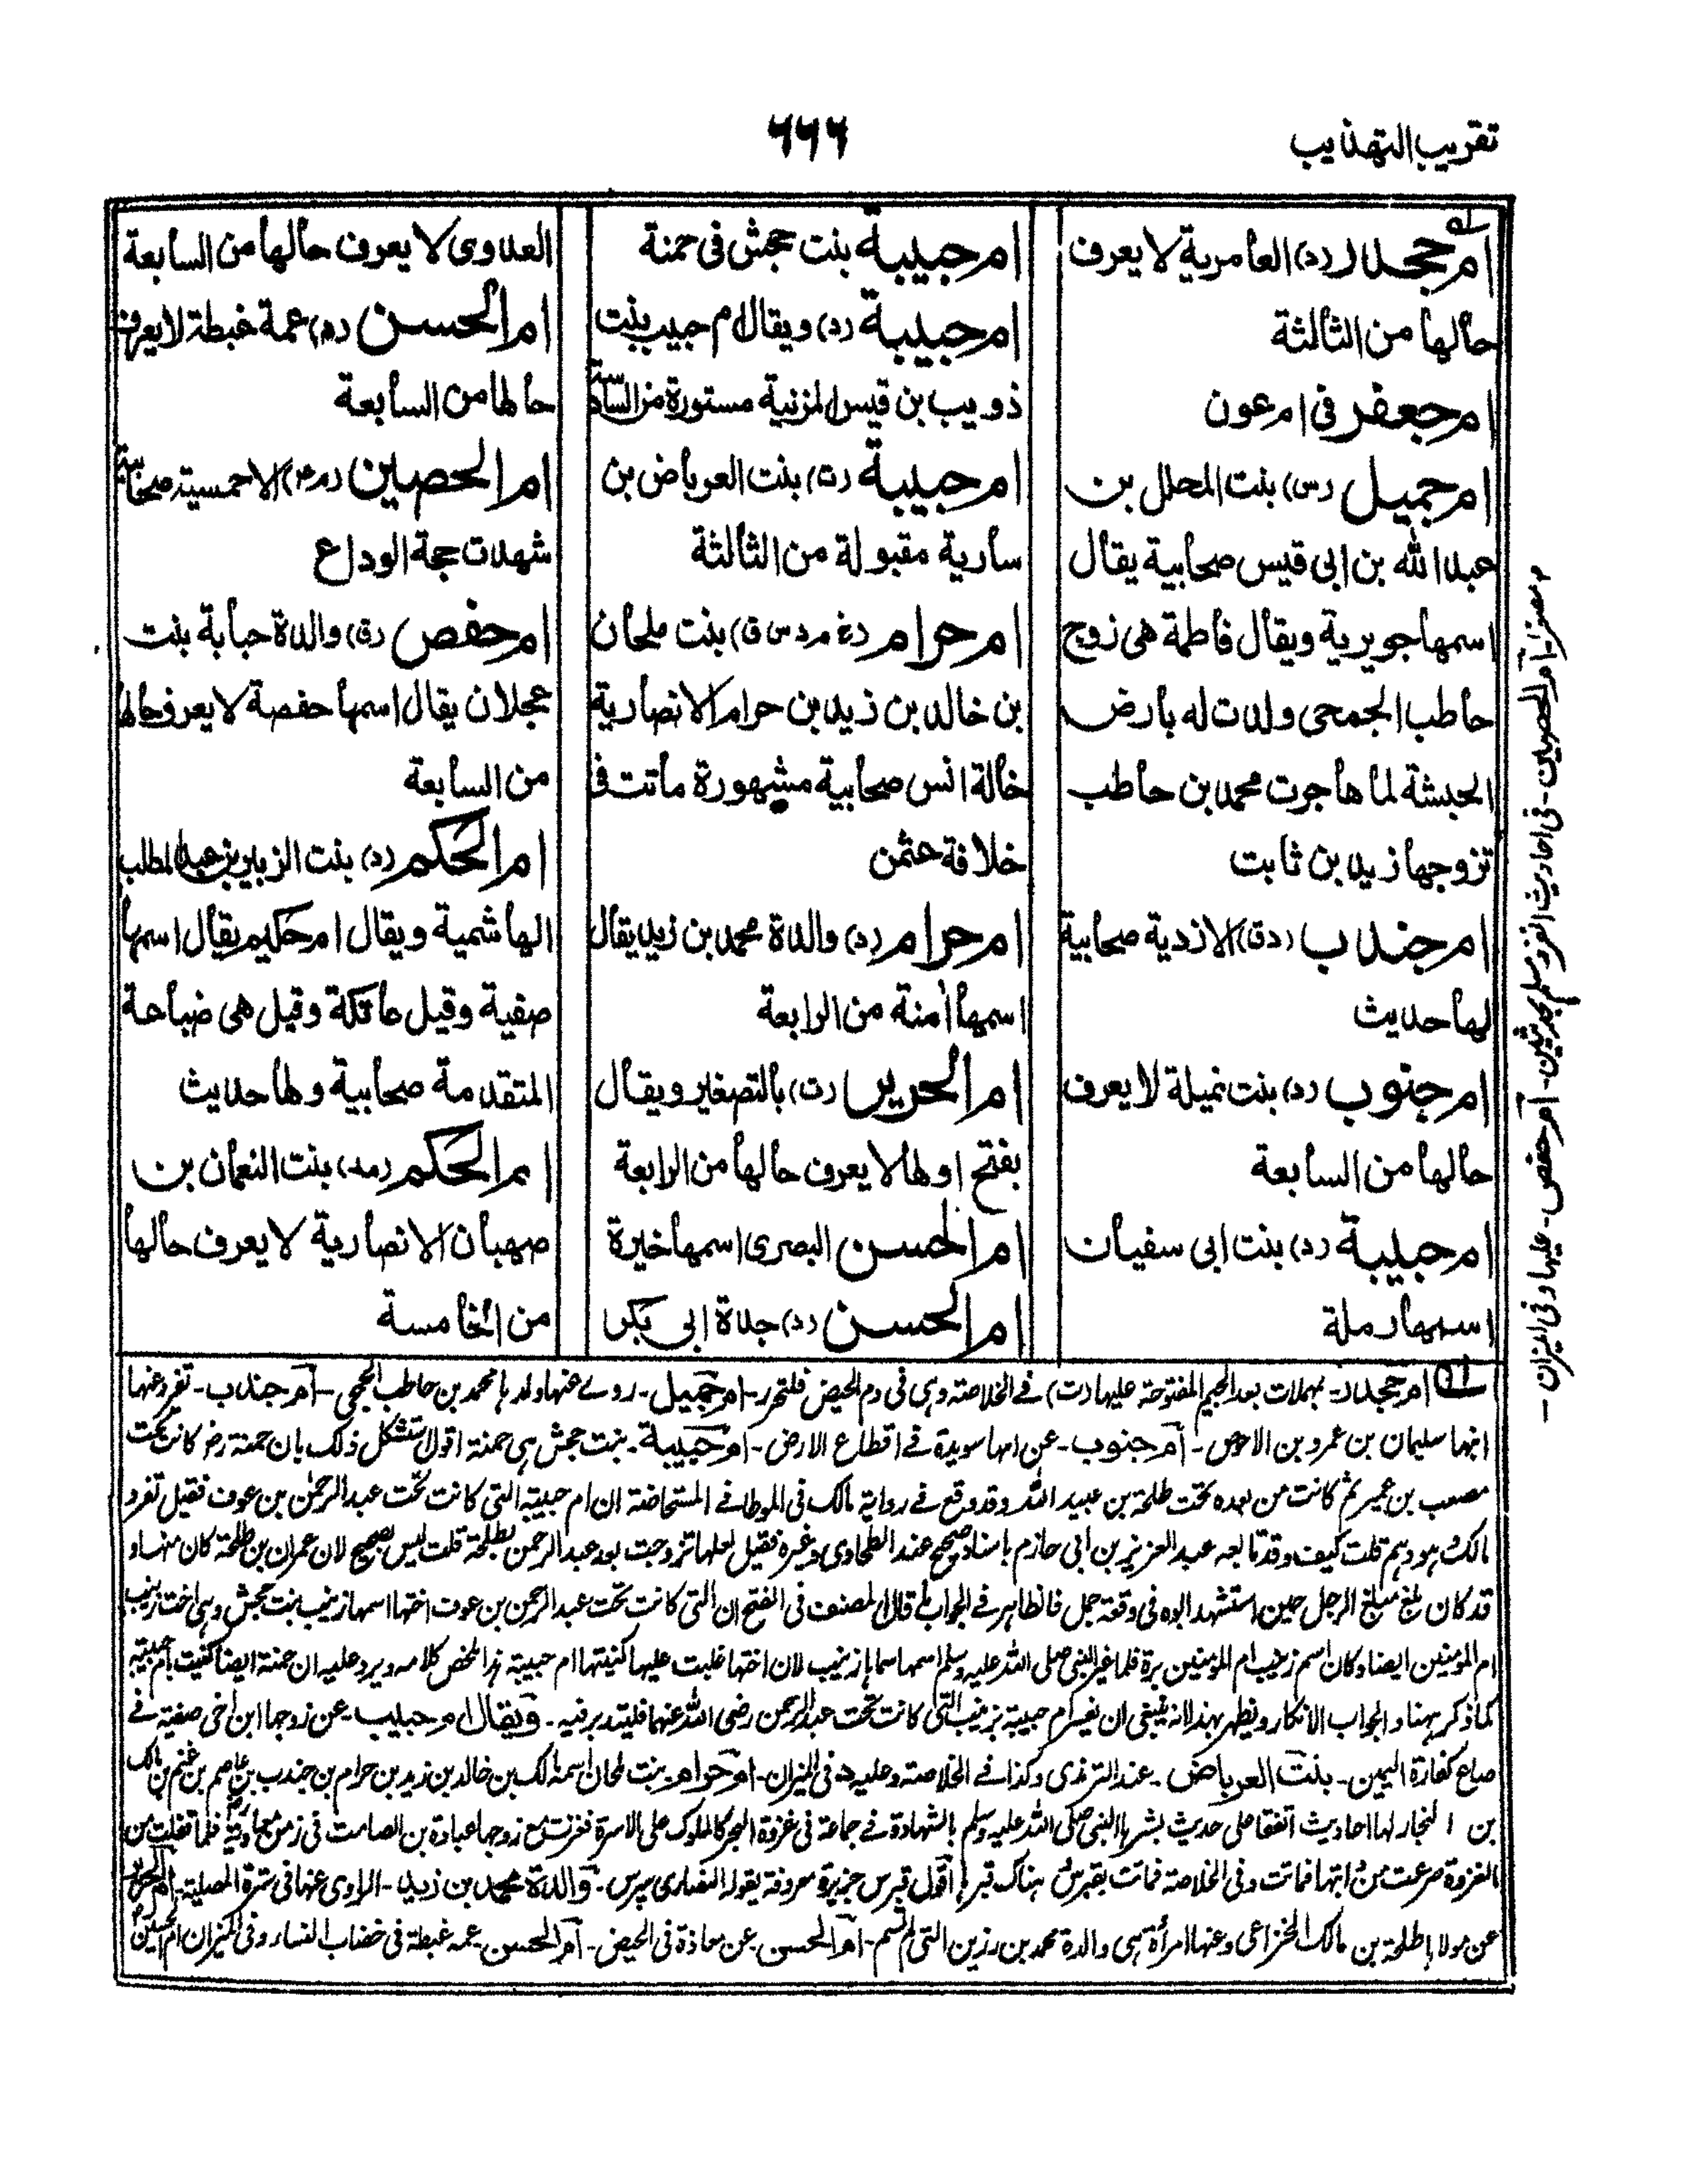 تقریب التهذیب
٦٦٦
ام جحدر (د) العامرية لا يعرف
حالها من الثالثة
ام جعفر فی ام عون
ام جميل (س) بنت المحلل بن
عبد الله بن ابی قيس صحابية يقال
اسمها جويرية ويقال فاطمة هی زوج
حاطب الجمحی ولدت له بارض
الحبشة لما هاجرت محمد بن حاطب
تزوجها زيد بن ثابت
ام جندب (د ق) الازدية صحابية
لها حديث
ام جنوب (د) بنت نميلة لا يعرف
حالها من السابعة
ام حبيبة (د) بنت ابی سفيان
اسمها رملة
ام حبيبة بنت جحش فی حمنة
ام حبيبة (د) ويقال ام حبيب بنت
ذويب بن قيس المزنية مستورة من السادسة
ام حبيبة (ت) بنت العرباض بن
سارية مقبولة من الثالثة
ام حرام (خ م د س ق) بنت ملحان
بن خالد بن زيد بن حرام الانصارية
خالة انس صحابية مشهورة ماتت فی
خلافة عثمن
ام حرام (د) والدة محمد بن زيد يقال
اسمها اٰمنة من الرابعة
ام الحرير (ت) بالتصغير ويقال
بفتح اولها لا يعرف حالها من الرابعة
ام الحسن البصری اسمها خيرة
ام الحسن (د) جدة ابی بكر
العدوی لا يعرف حالها من السابعة
ام الحسن (د) عمة غبطة لا يعرف
حالها من السابعة
ام الحصين (م ٤) الاحمسية صحابية
شهدت حجة الوداع
ام حفص (ق) والدة حبابة بنت
عجلان يقال اسمها حفصة لا يعرف حالها
من السابعة
ام الحكم (د) بنت الزبير بن عبد المطلب
الهاشمية ويقال ام حكيم يقال اسمها
صفية وقيل عاتكة وقيل هی ضباعة
المتقدمة صحابية ولها حديث
ام الحكم (مد) بنت النعمان بن
صهبان الانصارية لا يعرف حالها
من الخامسة
ام جحدر۔ بمهملات بعد الجيم المفتوحة عليها (ت) فے الخلاصة وہی فی دم الحيض فلتحرر۔ ام جميل۔ روے عنها ولدہا محمد بن حاطب الجمحی۔ ام جندب۔ تفرد عنها
ابنها سليمان بن عمرو بن الاحوص۔ ام جنوب۔ عن امها سويدة فے اقطاع الارض۔ ام حبيبة۔ بنت جحش ہی حمنة اقول استشكل ذلك بان حمنة رض كانت تحت
مصعب بن عمير ثم كانت من بعده تحت طلحة بن عبيد الله وقد وقع فے رواية مالك فی الموطا فے المستحاضة ان ام حبيبة التی كانت تحت عبد الرحمٰن بن عوف فقيل تفرد
مالك به وهم قلت كيف وقد تابعه عبد العزيز بن ابی حازم باسناد صحيح عند الطحاوی وغيره فقيل لعلها تزوجت بعد عبد الرحمن بطلحة قلت ليس بصحيح لان عمران بن طلحة كان منها و
قد كان بلغ مبلغ الرجل حين استشهد ابوه فی وقعة جمل فالظاہر فے الجواب ما قال المصنف فی الفتح ان التی كانت تحت عبد الرحمن بن عوف اختها اسمها زينب بنت جحش وہی اخت زينب
ام المؤمنين ايضا وكان اسم زينب ام المؤمنين برة فلما غير النبی صلی الله عليه وسلم اسمها سماہا زينب لان اختها غلبت عليها كنيتها ام حبيبة ہذا ملخص كلامه ويرد عليه ان حمنة ايضا كنيت بام حبيبة
كما ذكر ہهنا والجواب الانكار ويظهر بهذا انه ينبغی ان يفسر ام حبيبة بزينب التی كانت تحت عبد الرحمن رضی الله عنهما فليتدبر فيه۔ ويقال ام حبيب۔ عن زوجها ابن اخی صفية فے
صاع كفارة اليمين۔ بنت العرباض۔ عند الترمذی وكذا فے الخلاصة وعليه د فی الميزان۔ ام حرام۔ بنت ملحان اسمه مالك بن خالد بن زيد بن حرام بن جندب بن عامر بن غنم بن مالك
بن النجار لها احاديث اتفقا علی حديث بشرہا النبی صلی الله عليه وسلم بالشهادة فے جماعة فی غزوة البحر كالملوك علی الاسرة فغزت مع زوجها عبادة بن الصامت فی زمن معاوية رض فلما قفلت من
الغزوة صرعت من دابتها فماتت وفی الخلاصة فماتت بقبرس ہناك قبرہا اقول قبرس جزيرة معروفة يقوله النصاری سپرس۔ والدة محمد بن زيد۔ الراوی عنها فی سترة المصلية۔ ام الحرير
عن مولاہا طلحة بن مالك الخزاعی وعنها امرأة ہی والدة محمد بن رزين التی لم تسم۔ ام الحسن عن معاذة فی الحيض۔ ام الحسن عمه غبطة فی خضاب النساء وفی الميزان ام الحسين
مصغرا۔ ام الحصين۔ فی احاديث انفرد مسلم بحديثين۔ ام حفص۔ عليها د فی الميزان۔